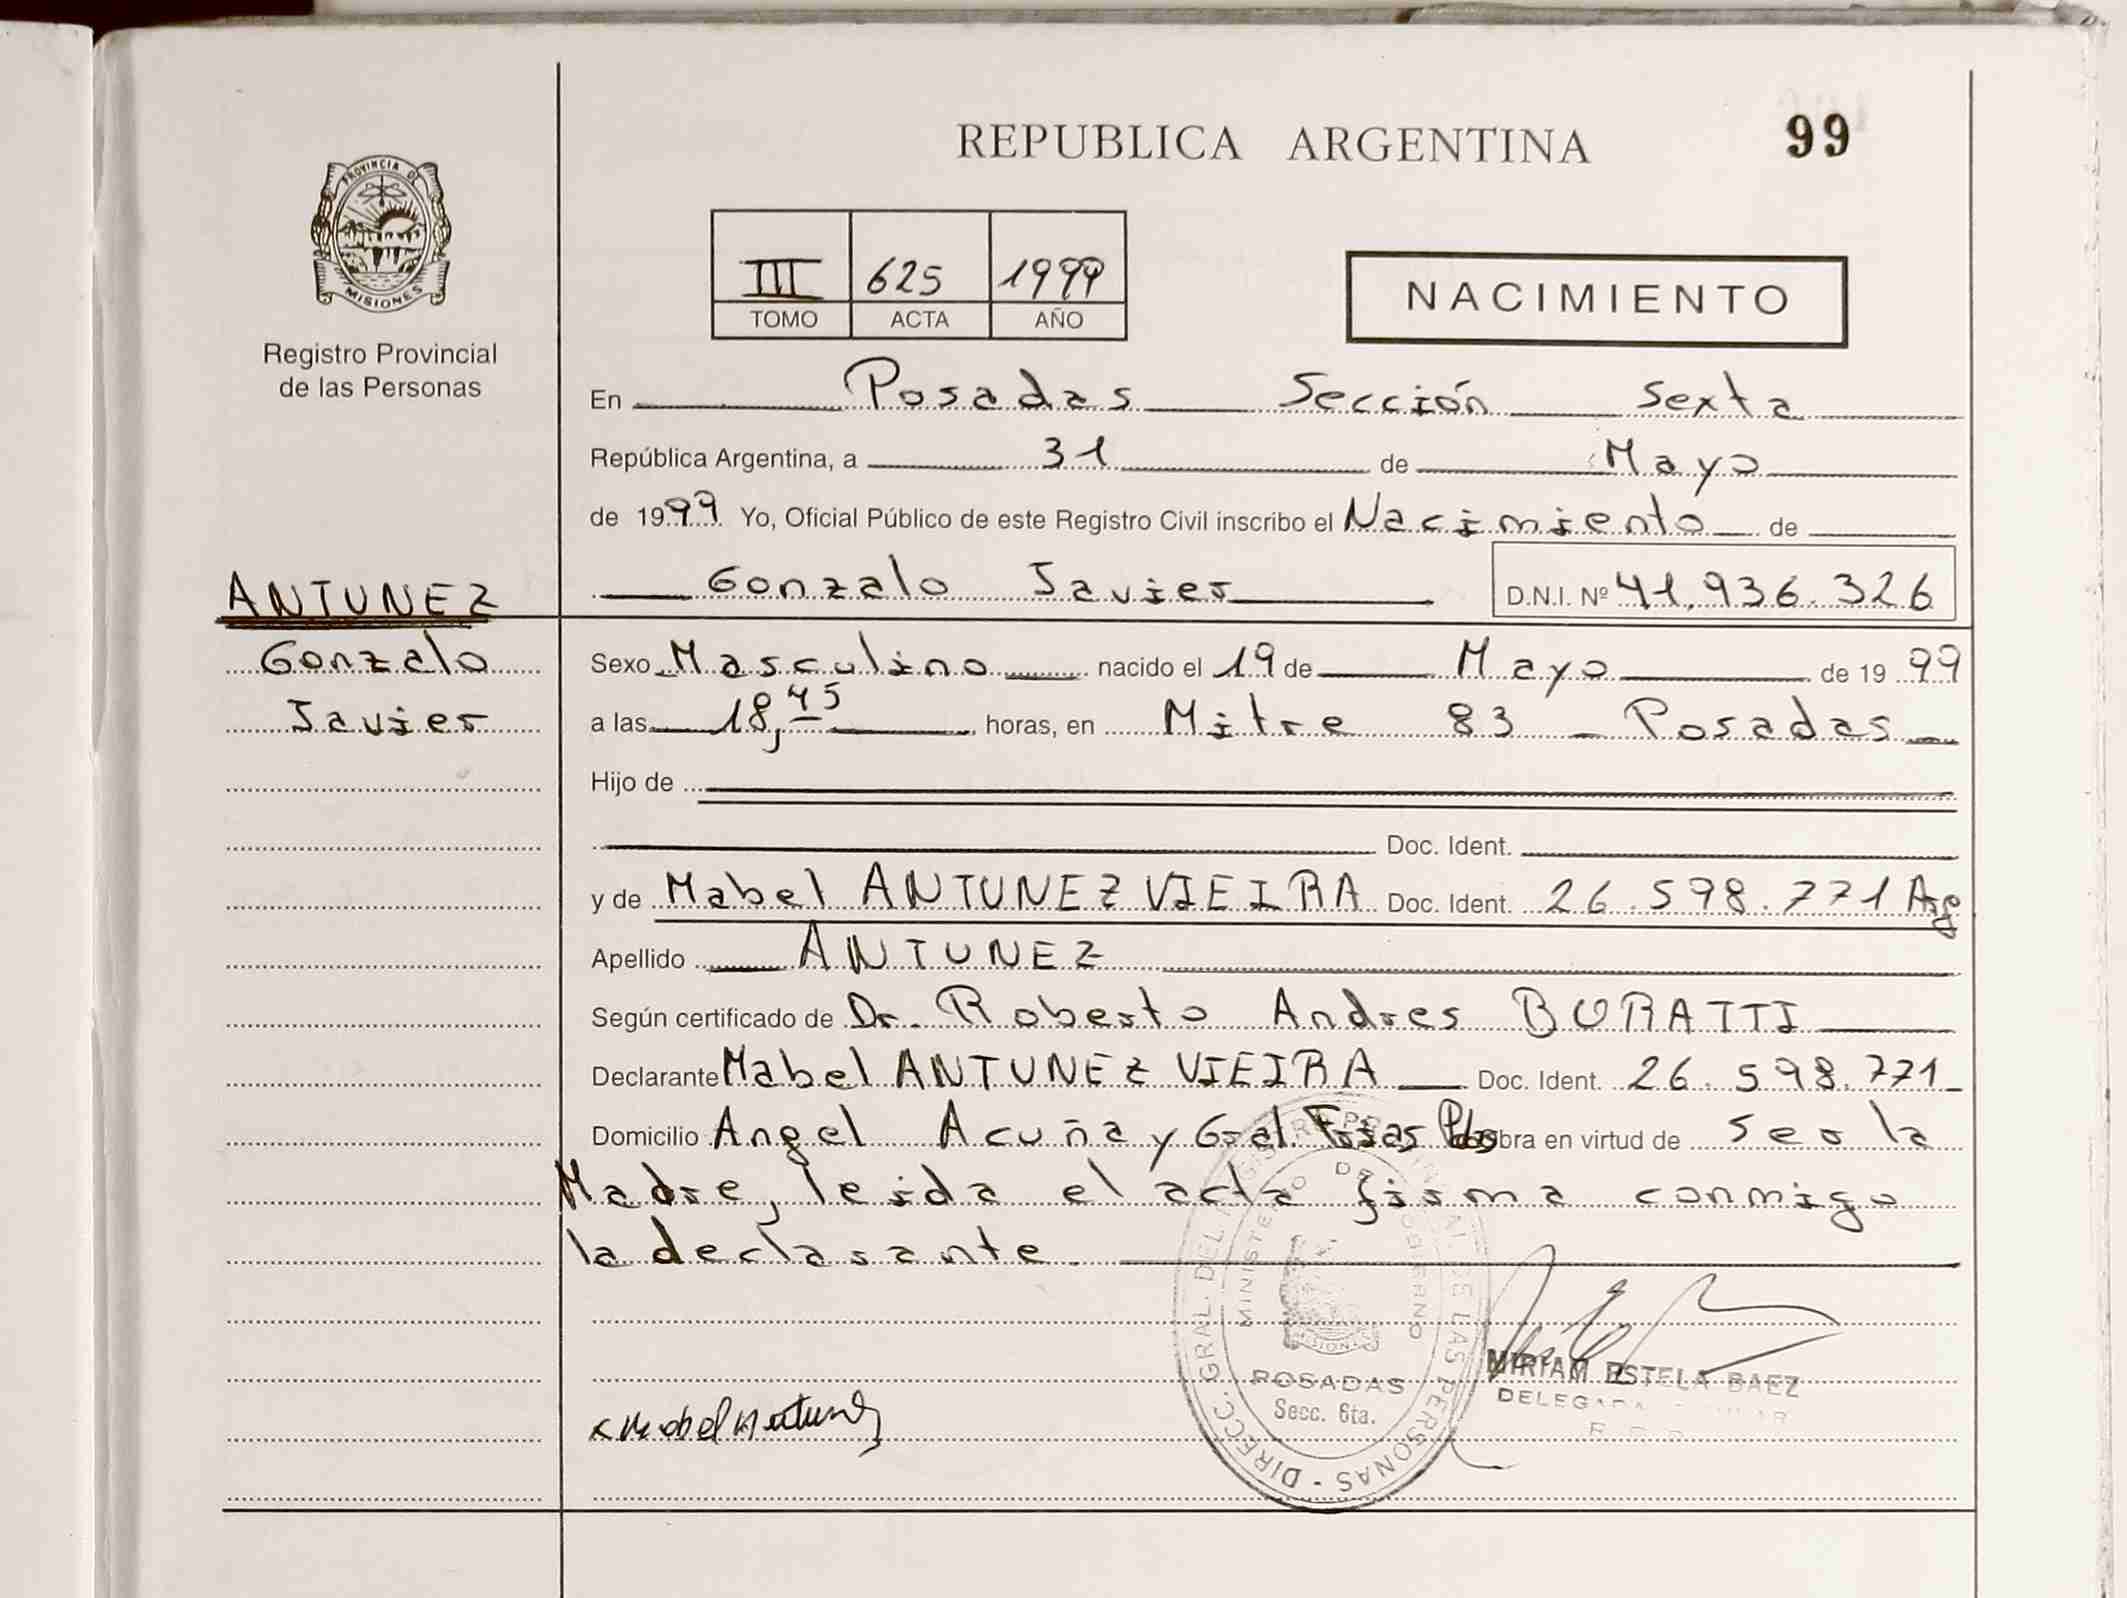 REPUBLICA ARGENTINA
99
PROVINCIA DE
MISIONES
Registro Provincial
de las Personas
III 625 1999
TOMO ACTA AÑO
NACIMIENTO
En Posadas Sección Sexta
República Argentina, a 31 de Mayo
de 1999 Yo, Oficial Público de este Registro Civil inscribo el Nacimiento de
Gonzalo Javier D.N.I. Nº 41.936.326
ANTUNEZ
Gonzalo
Javier
Sexo Masculino nacido el 19 de Mayo de 1999
a las 18,45 horas, en Mitre 83 - Posadas
Hijo de
Doc. Ident.
y de Mabel ANTUNEZ VIEIRA Doc. Ident. 26.598.771 Arg
Apellido ANTUNEZ
Según certificado de Dr. Roberto Andres BURATTI
Declarante Mabel ANTUNEZ VIEIRA Doc. Ident. 26.598.771
Domicilio Angel Acuña y Gral. Fosas Pdas obra en virtud de Ser la
Madre, leida el acta firma conmigo
la declarante.
DIRECC. GRAL. DEL REGISTRO PROVINCIAL DE LAS PERSONAS -
MINISTERIO DE GOBIERNO
MISIONES
POSADAS
Secc. 6ta.
MIRIAM ESTELA BAEZ
DELEGADA
x Mabel Antunez